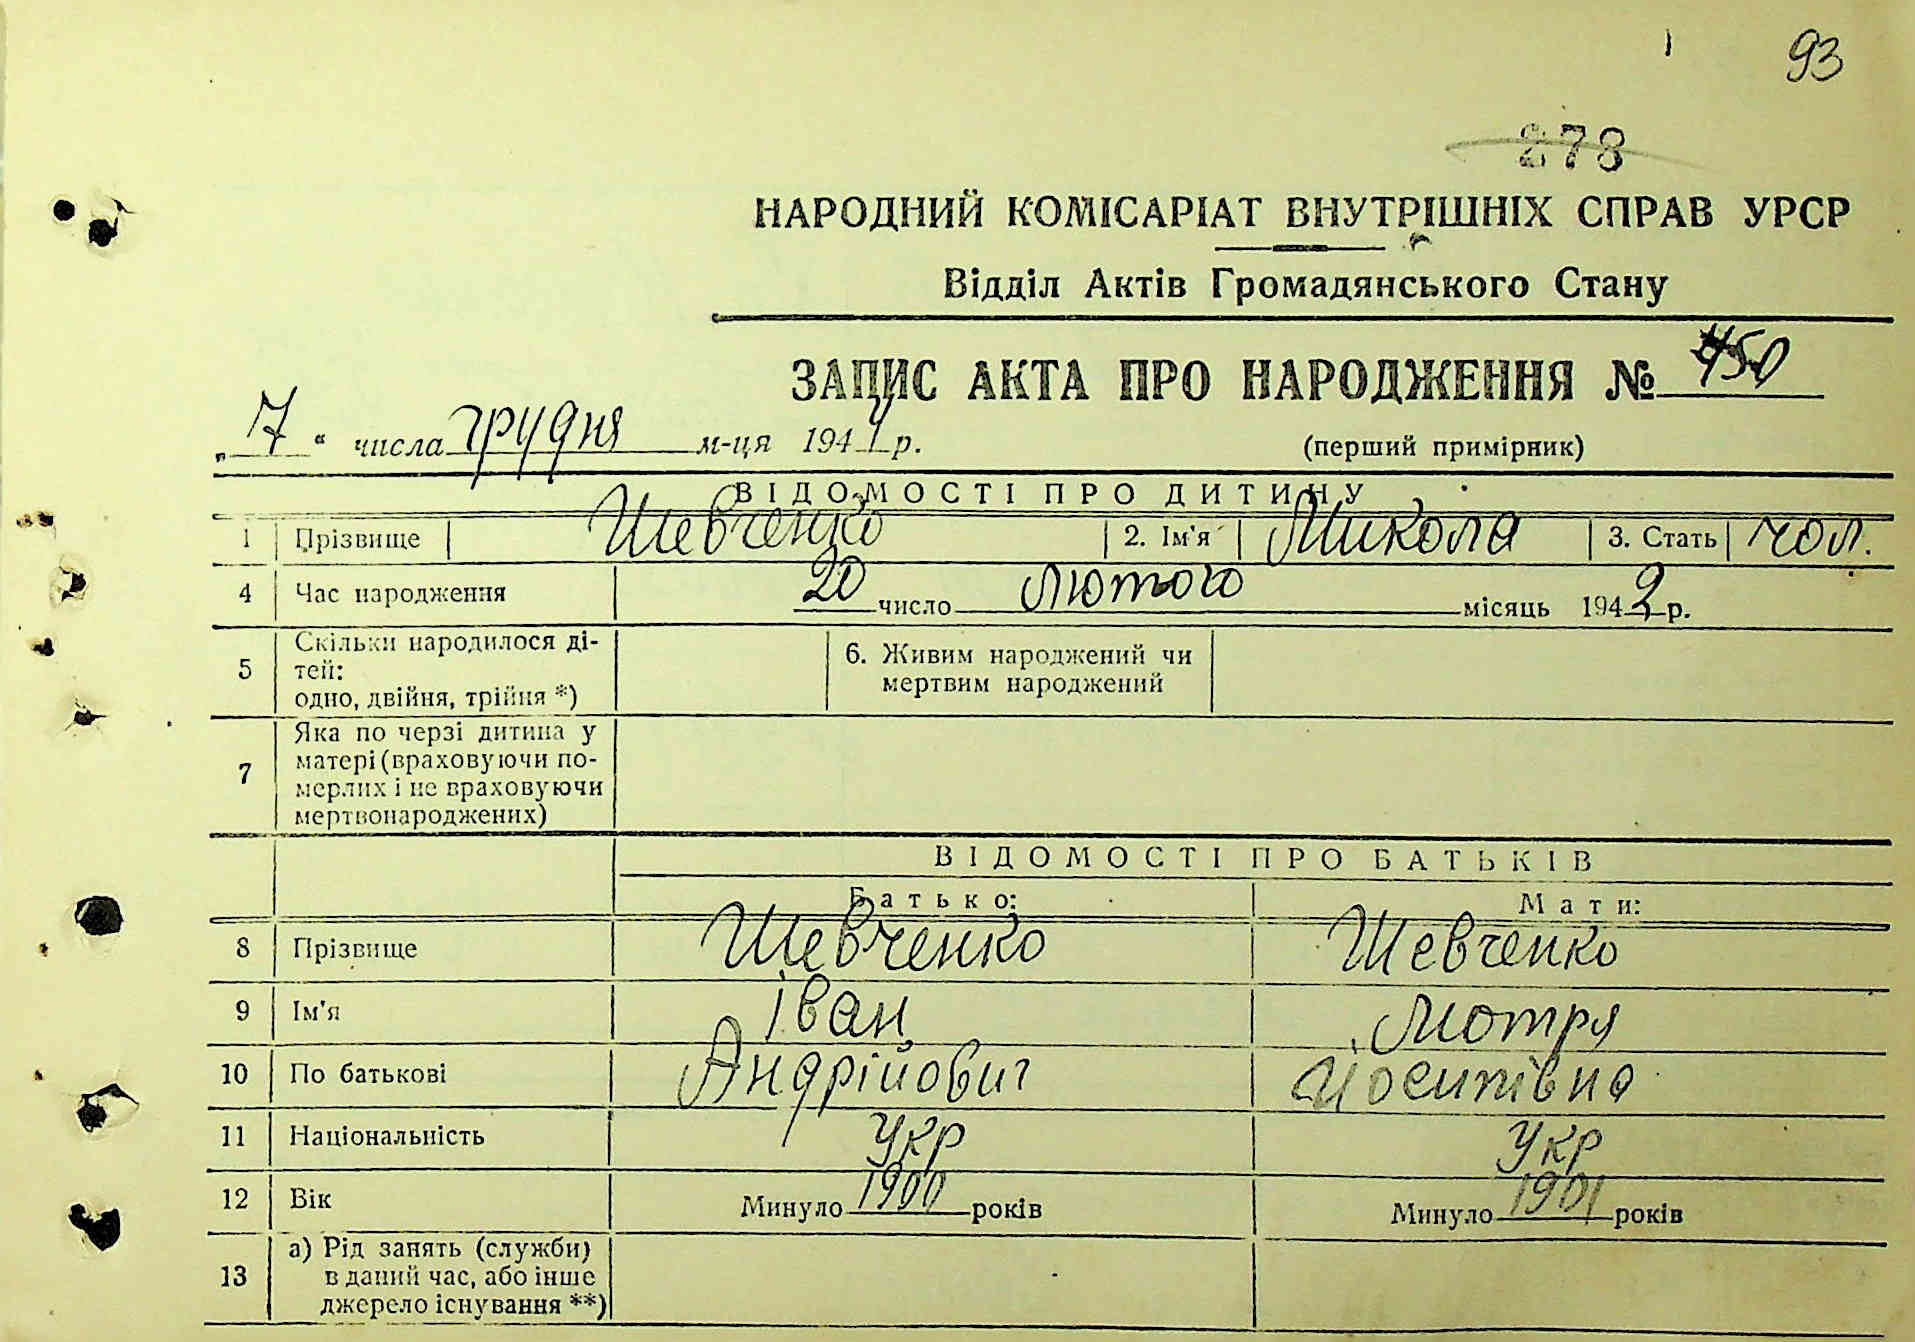 93
278
НАРОДНИЙ КОМІСАРІАТ ВНУТРІШНІХ СПРАВ УРСР
Відділ Актів Громадянського Стану
ЗАПИС АКТА ПРО НАРОДЖЕННЯ № 450
„7“ числа грудня м-ця 1944 р. (перший примірник)
ВІДОМОСТІ ПРО ДИТИНУ
1 Прізвище Шевченко 2. Ім'я Микола 3. Стать чол.
4 Час народження 20 число лютого місяць 1942 р.
5 Скільки народилося ді-
тей:
одно, двійня, трійня *)
6. Живим народжений чи
мертвим народжений
7 Яка по черзі дитина у
матері (враховуючи по-
мерлих і не враховуючи
мертвонароджених)
ВІДОМОСТІ ПРО БАТЬКІВ
Батько: Мати:
8 Прізвище Шевченко Шевченко
9 Ім'я Іван Мотря
10 По батькові Андрійович Йосипівна
11 Національність Укр Укр
12 Вік Минуло 1900 років Минуло 1901 років
13 а) Рід занять (служби)
в даний час, або інше
джерело існування **)